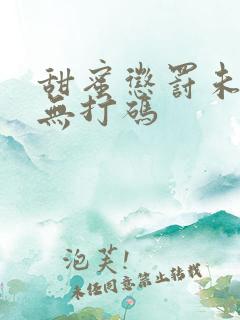 甜蜜懲罰未
無打碼
泡芙!
未任同意禁止转载